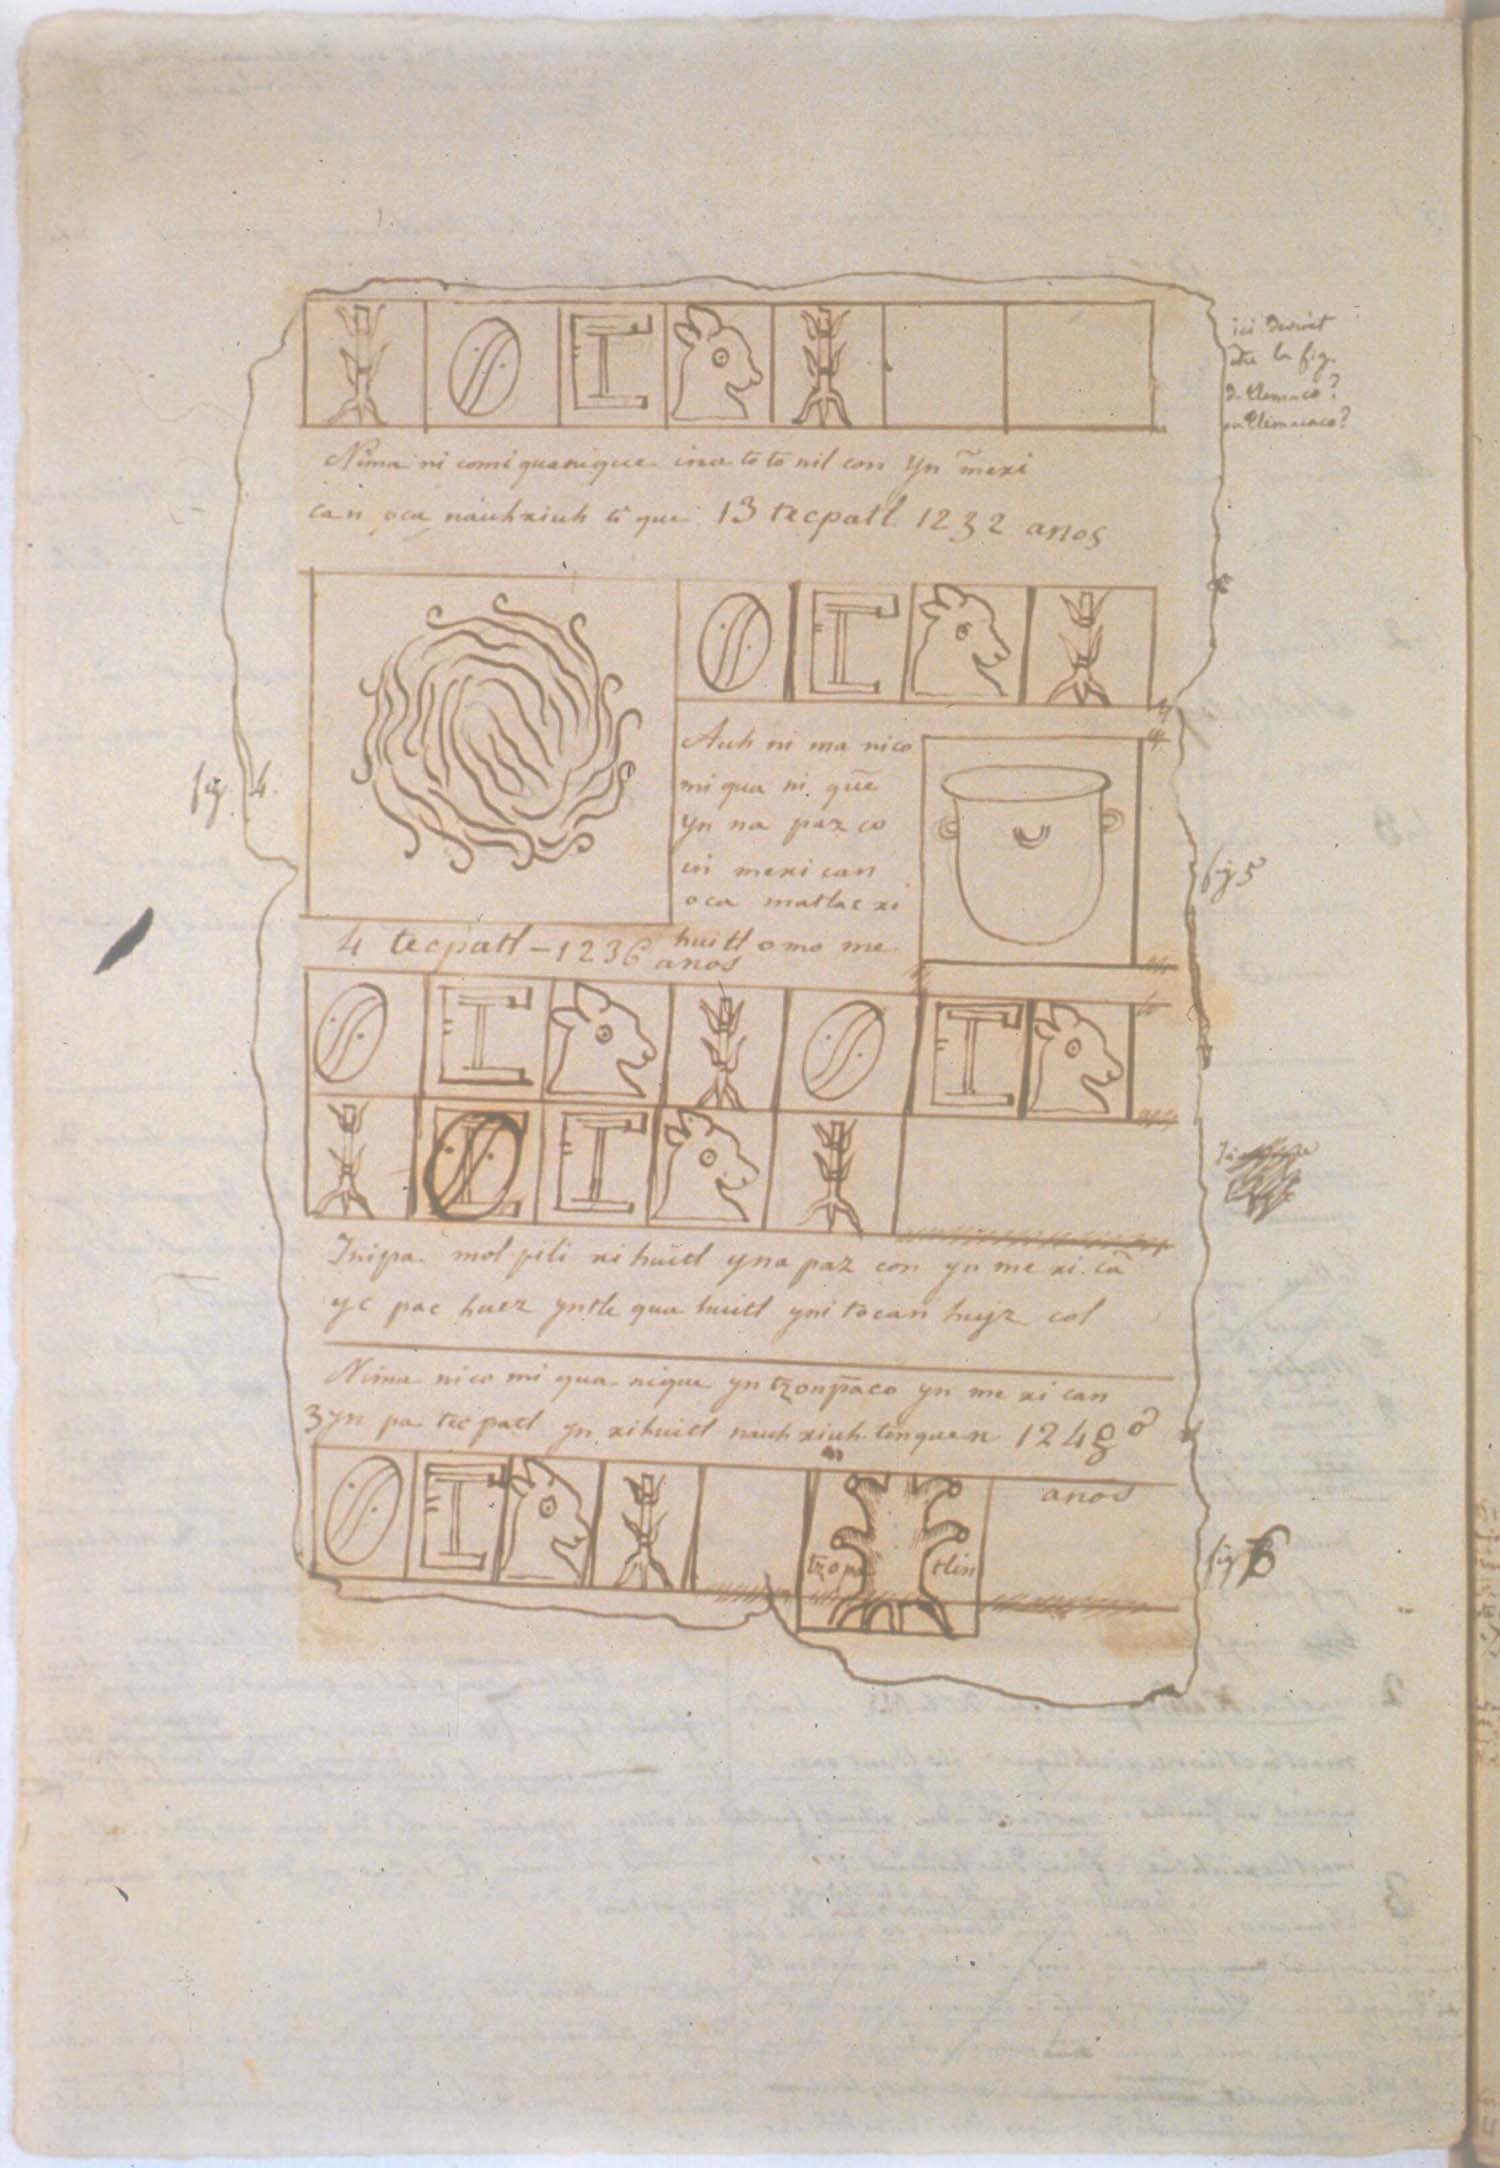 ici devroit
être la fig.
de tlemaco?
ou tlemacaco?
Nima ni comi quanique ina to to nil con yn m̃exi
can oca nauhxiuh ti que 13 tecpatl 1232 anos
fig. 4.
Auh ni ma nico
mi qua ni que
yn na paz co
in mexi can
oca matlac xi
huitl omo me
4 tecpatl – 1236 anos
fig 5
Inipa mol pili xi huitl yna paz con yn me xi cã
yc pac huez yntle qua huitl yni tocan huiz col
Nima nico mi qua nique yn tzonpaco yn me xi can
3 yn pa tec patl yn xihuitl nauh xiuh tinquen 1248
anos
tzopa tlin
fig 6